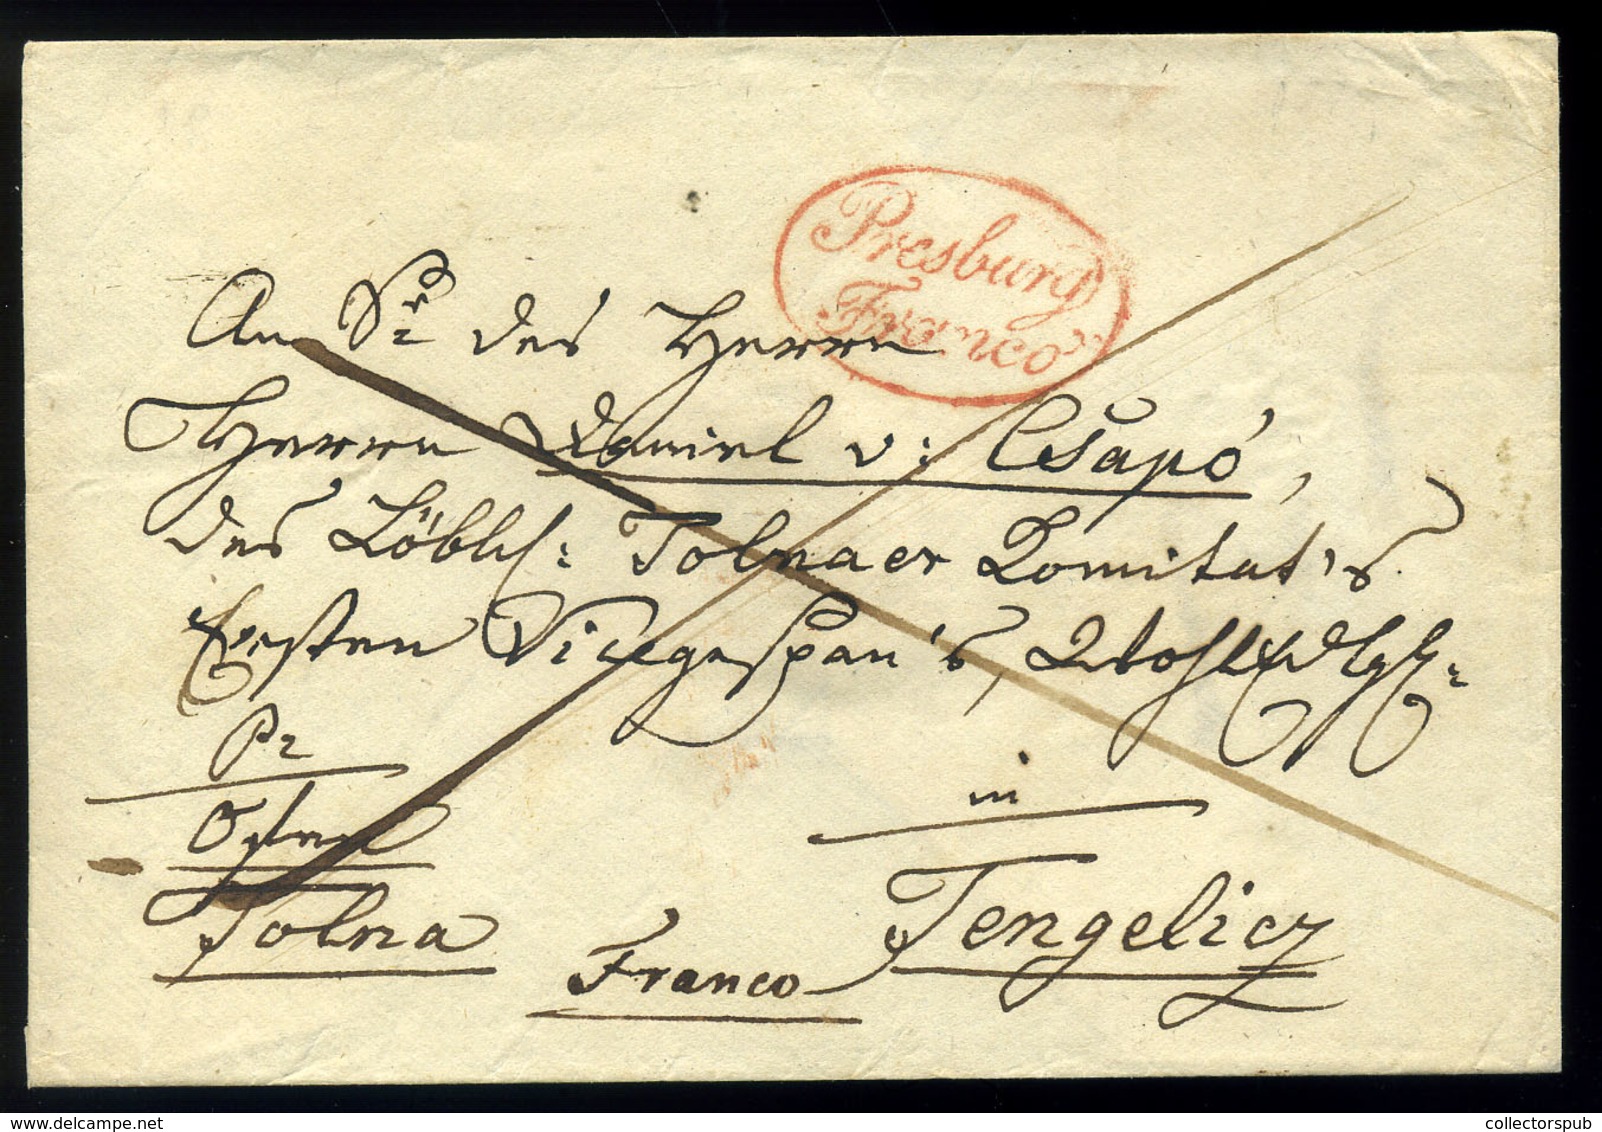 Presburg
Franco
An Sr des Herrn
Herrn Daniel v: Csapó,
des Löbl: Tolnaer Comitat's
Ersten Vicegespan's, Wohlgeb:
Pr
Ofen
Tolna
in
Tengelicz
Franco
www.delcampe.net
collectorspub